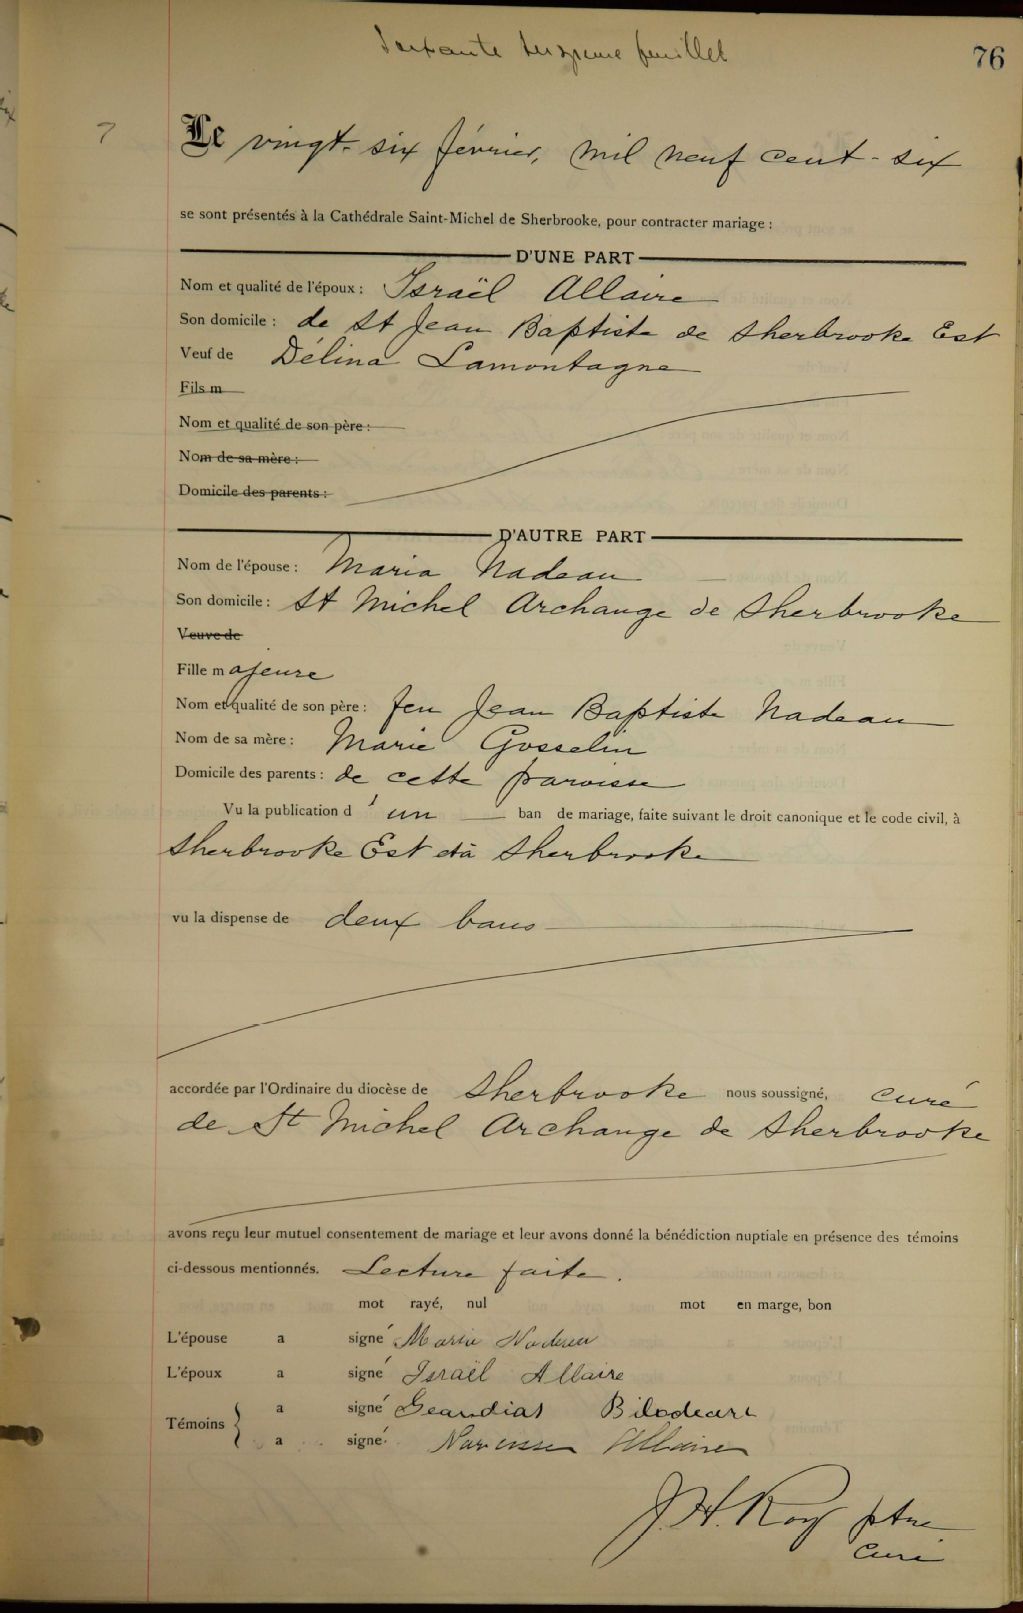 Soixante feuillet
76
7
Le vingt-six février, mil neuf cent-six
se sont présentés à la Cathédrale Saint-Michel de Sherbrooke, pour contracter mariage :
D'UNE PART
Nom et qualité de l'époux : Israël Allaire
Son domicile : de St Jean Baptiste de Sherbrooke Est
Veuf de Délina Lamontagne
Fils m
Nom et qualité de son père :
Nom de sa mère :
Domicile des parents :
D'AUTRE PART
Nom de l'épouse : Maria Nadeau
Son domicile : St Michel Archange de Sherbrooke
Veuve de
Fille majeure
Nom et qualité de son père : feu Jean Baptiste Nadeau
Nom de sa mère : Marie Gosselin
Domicile des parents : de cette paroisse
Vu la publication d'un ban de mariage, faite suivant le droit canonique et le code civil, à
Sherbrooke Est et à Sherbrooke
vu la dispense de deux bans
accordée par l'Ordinaire du diocèse de Sherbrooke nous soussigné, curé
de St Michel Archange de Sherbrooke
avons reçu leur mutuel consentement de mariage et leur avons donné la bénédiction nuptiale en présence des témoins
ci-dessous mentionnés. Lecture faite.
mot rayé, nul mot en marge, bon
L'épouse a signé Maria Nadeau
L'époux a signé Israël Allaire
Témoins { a signé Bilodeau
a signé Narcisse Allaire
J. H. Roy ptre
Curé